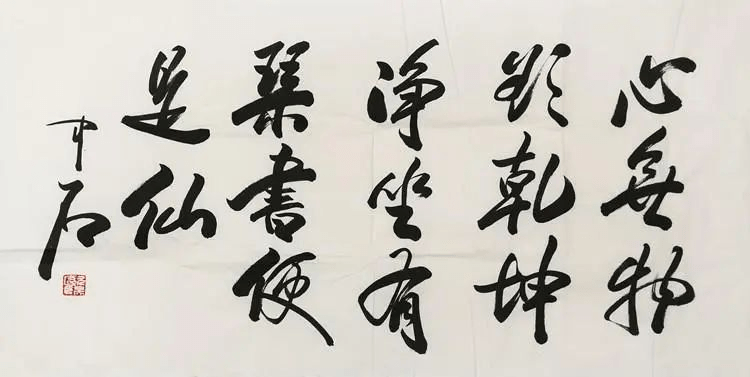 心無物
欲乾坤
浄坐有
琴書便
是仙
中石